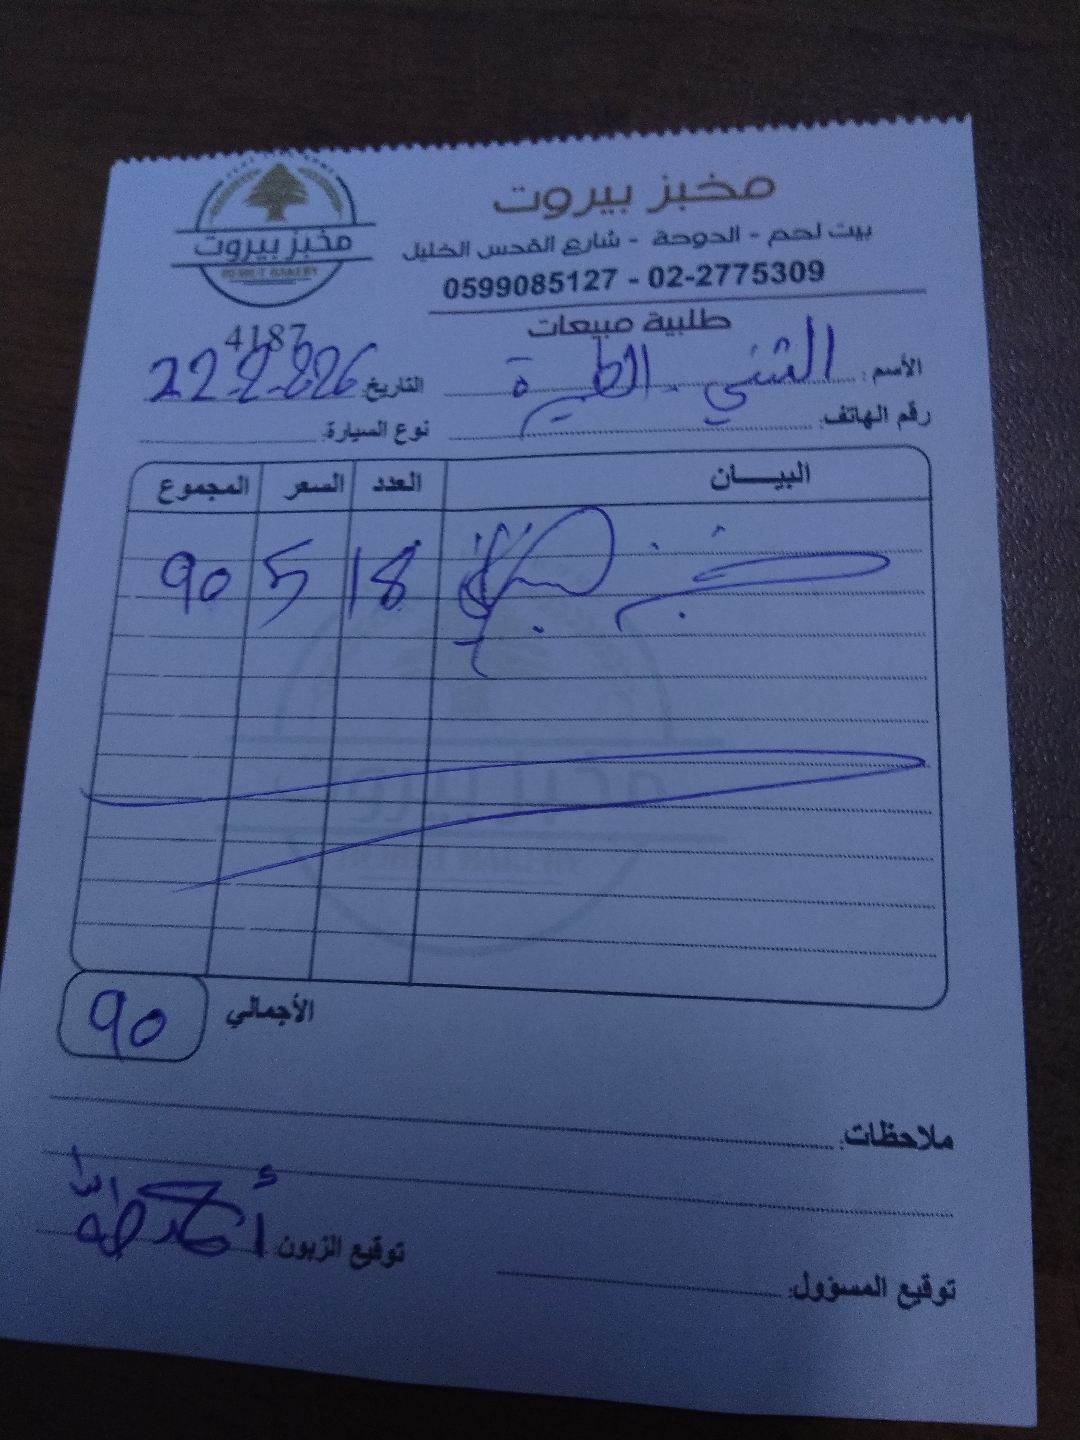 مخبز بيروت
BEIRUT BAKERY
مخبز بيروت
بيت لحم - الدوحة - شارع القدس الخليل
0599085127 - 02-2775309
طلبية مبيعات
4187
الأسم:
التاريخ: 22-2-2026
رقم الهاتف:
نوع السيارة:
البيـــان العدد السعر المجموع
18 5 90
الأجمالي 90
ملاحظات:
توقيع الزبون:
توقيع المسؤول: